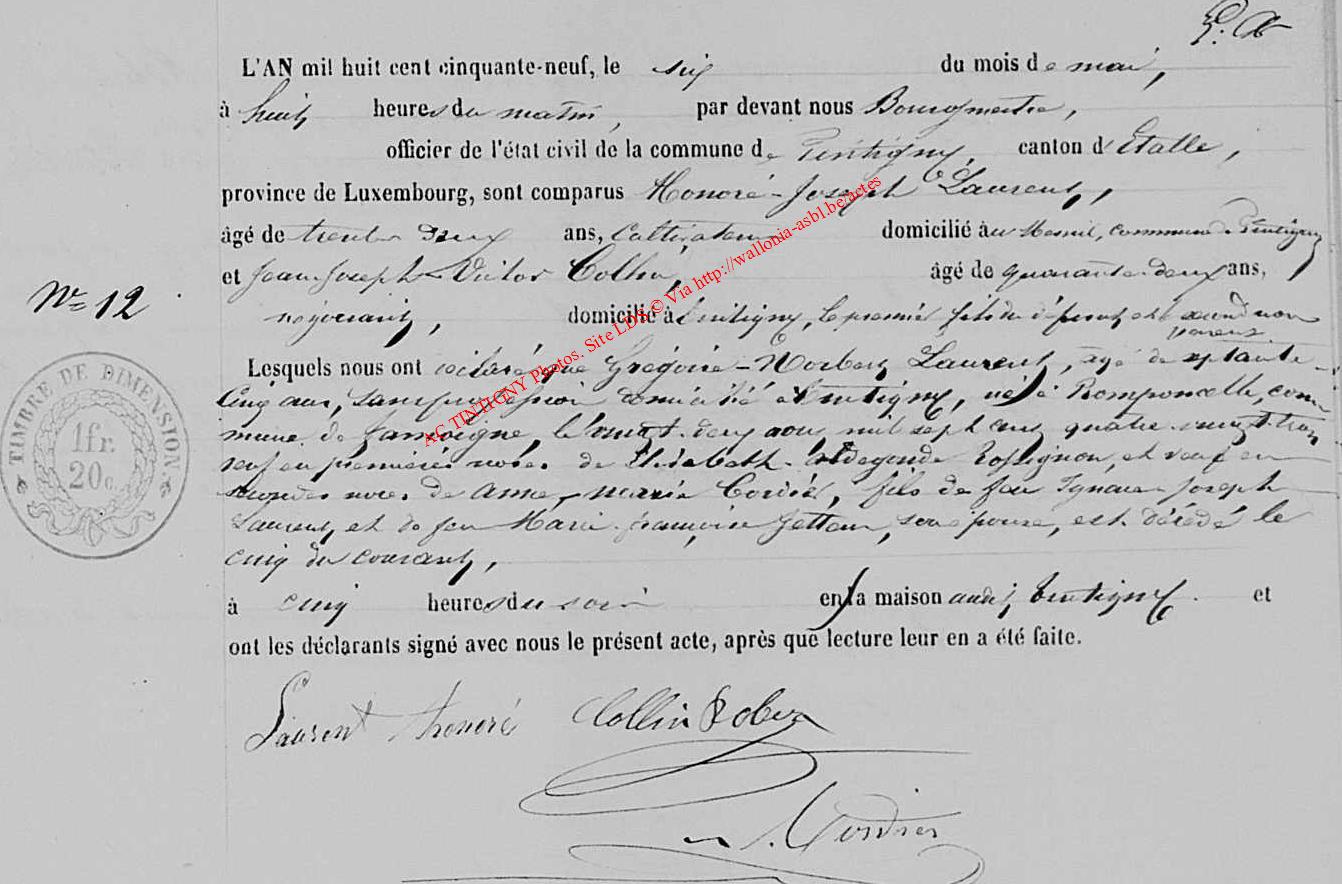 L'AN mil huit cent cinquante-neuf, le six du mois de mai,
à huit heures du matin, par devant nous Bourgmestre,
officier de l'état civil de la commune de Tintigny, canton d'Etalle,
province de Luxembourg, sont comparus Honoré-Joseph Laurent,
âgé de trente deux ans, Cultivateur domicilié au Mesnil, commune de Tintigny
et Jean-Joseph-Victor Collin, âgé de quarante-deux ans,
négociant, domicilié à Tintigny, le premier fils du défunt et le second non
parent
N° 12
Lesquels nous ont déclaré que Grégoire-Norbert Laurent, agé de septante-
Cinq ans, sans profession domicilié à Tintigny, né à Romponcelle, com-
mune de Jamoigne, le vingt-deux aout mil sept cent quatre-vingt-trois
veuf en premières noces de Elisabeth-Aldegonde Rossignon, et veuf en
secondes noces de Anne-Marie Cordier, fils de feu Ignace-Joseph
Laurent, et de feu Marie-Françoise Jetteur, son épouse, est décédé le
cinq du courant,
à cinq heures du soir en sa maison audit Tintigny. et
ont les déclarants signé avec nous le présent acte, après que lecture leur en a été faite.
TIMBRE DE DIMENSION
1 fr.
20 c.
Laurent honoré Collin
Cordier
AC TINTIGNY Photos. Site LDS © Via http://wallonia-asbl.be/actes